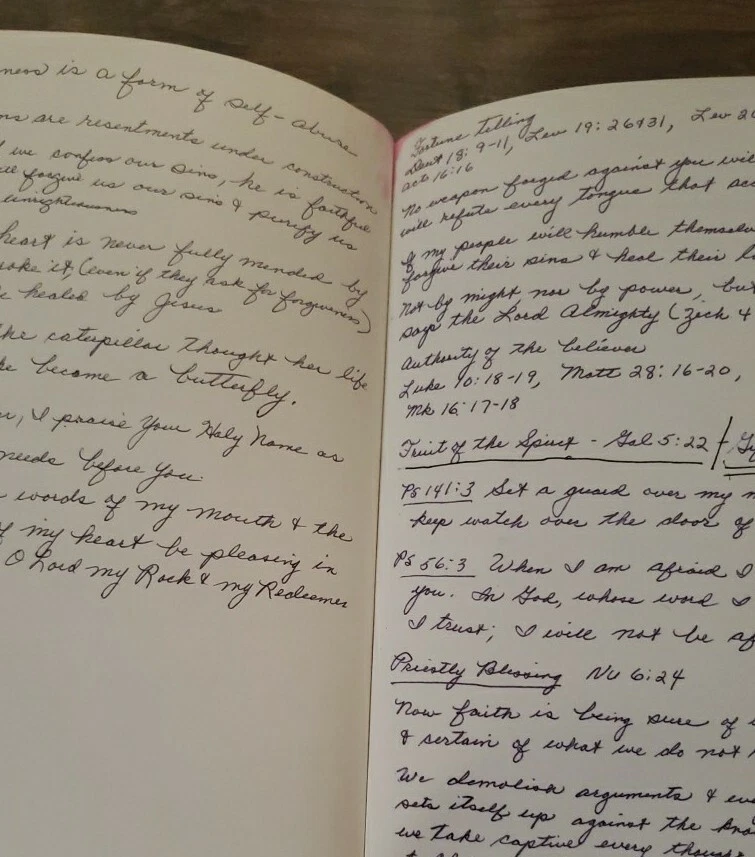 ness is a form of self-abuse
ns are resentments under construction
we confess our sins, he is faithful
ll forgive us our sins & purify us
unrighteousness
heart is never fully mended by
oke it, (even if they ask for forgiveness)
e healed by Jesus
the caterpillar thought her life
he become a butterfly.
r, I praise Your Holy Name as
needs before you.
words of my mouth & the
f my heart be pleasing in
O Lord my Rock & my Redeemer
Fortune Telling
Deut 18: 9-11, Lev 19: 26 & 31, Lev 20
Act 16:16
No weapon forged against you will
will refute every tongue that acc
If my people will humble themselve
forgive their sins & heal their la
Not by might, nor by power, but
says the Lord Almighty (Zech 4
Authority of the believer
Luke 10: 18-19, Matt 28: 16-20,
Mk 16: 17-18
Fruit of the Spirit - Gal 5:22
PS 141:3 Set a guard over my m
keep watch over the door of
PS 56:3 When I am afraid I
you. In God, whose word I
I trust; I will not be af
Priestly Blessing NU 6:24
Now faith is being sure of
& sertain of what we do not
We demolish arguments & ev
sets itself up against the kno
we take captive every though